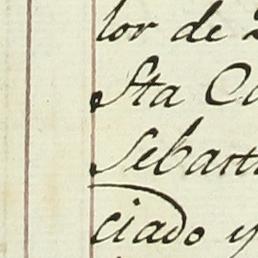 lor de
Sta Ca
Sebasti
ciado y